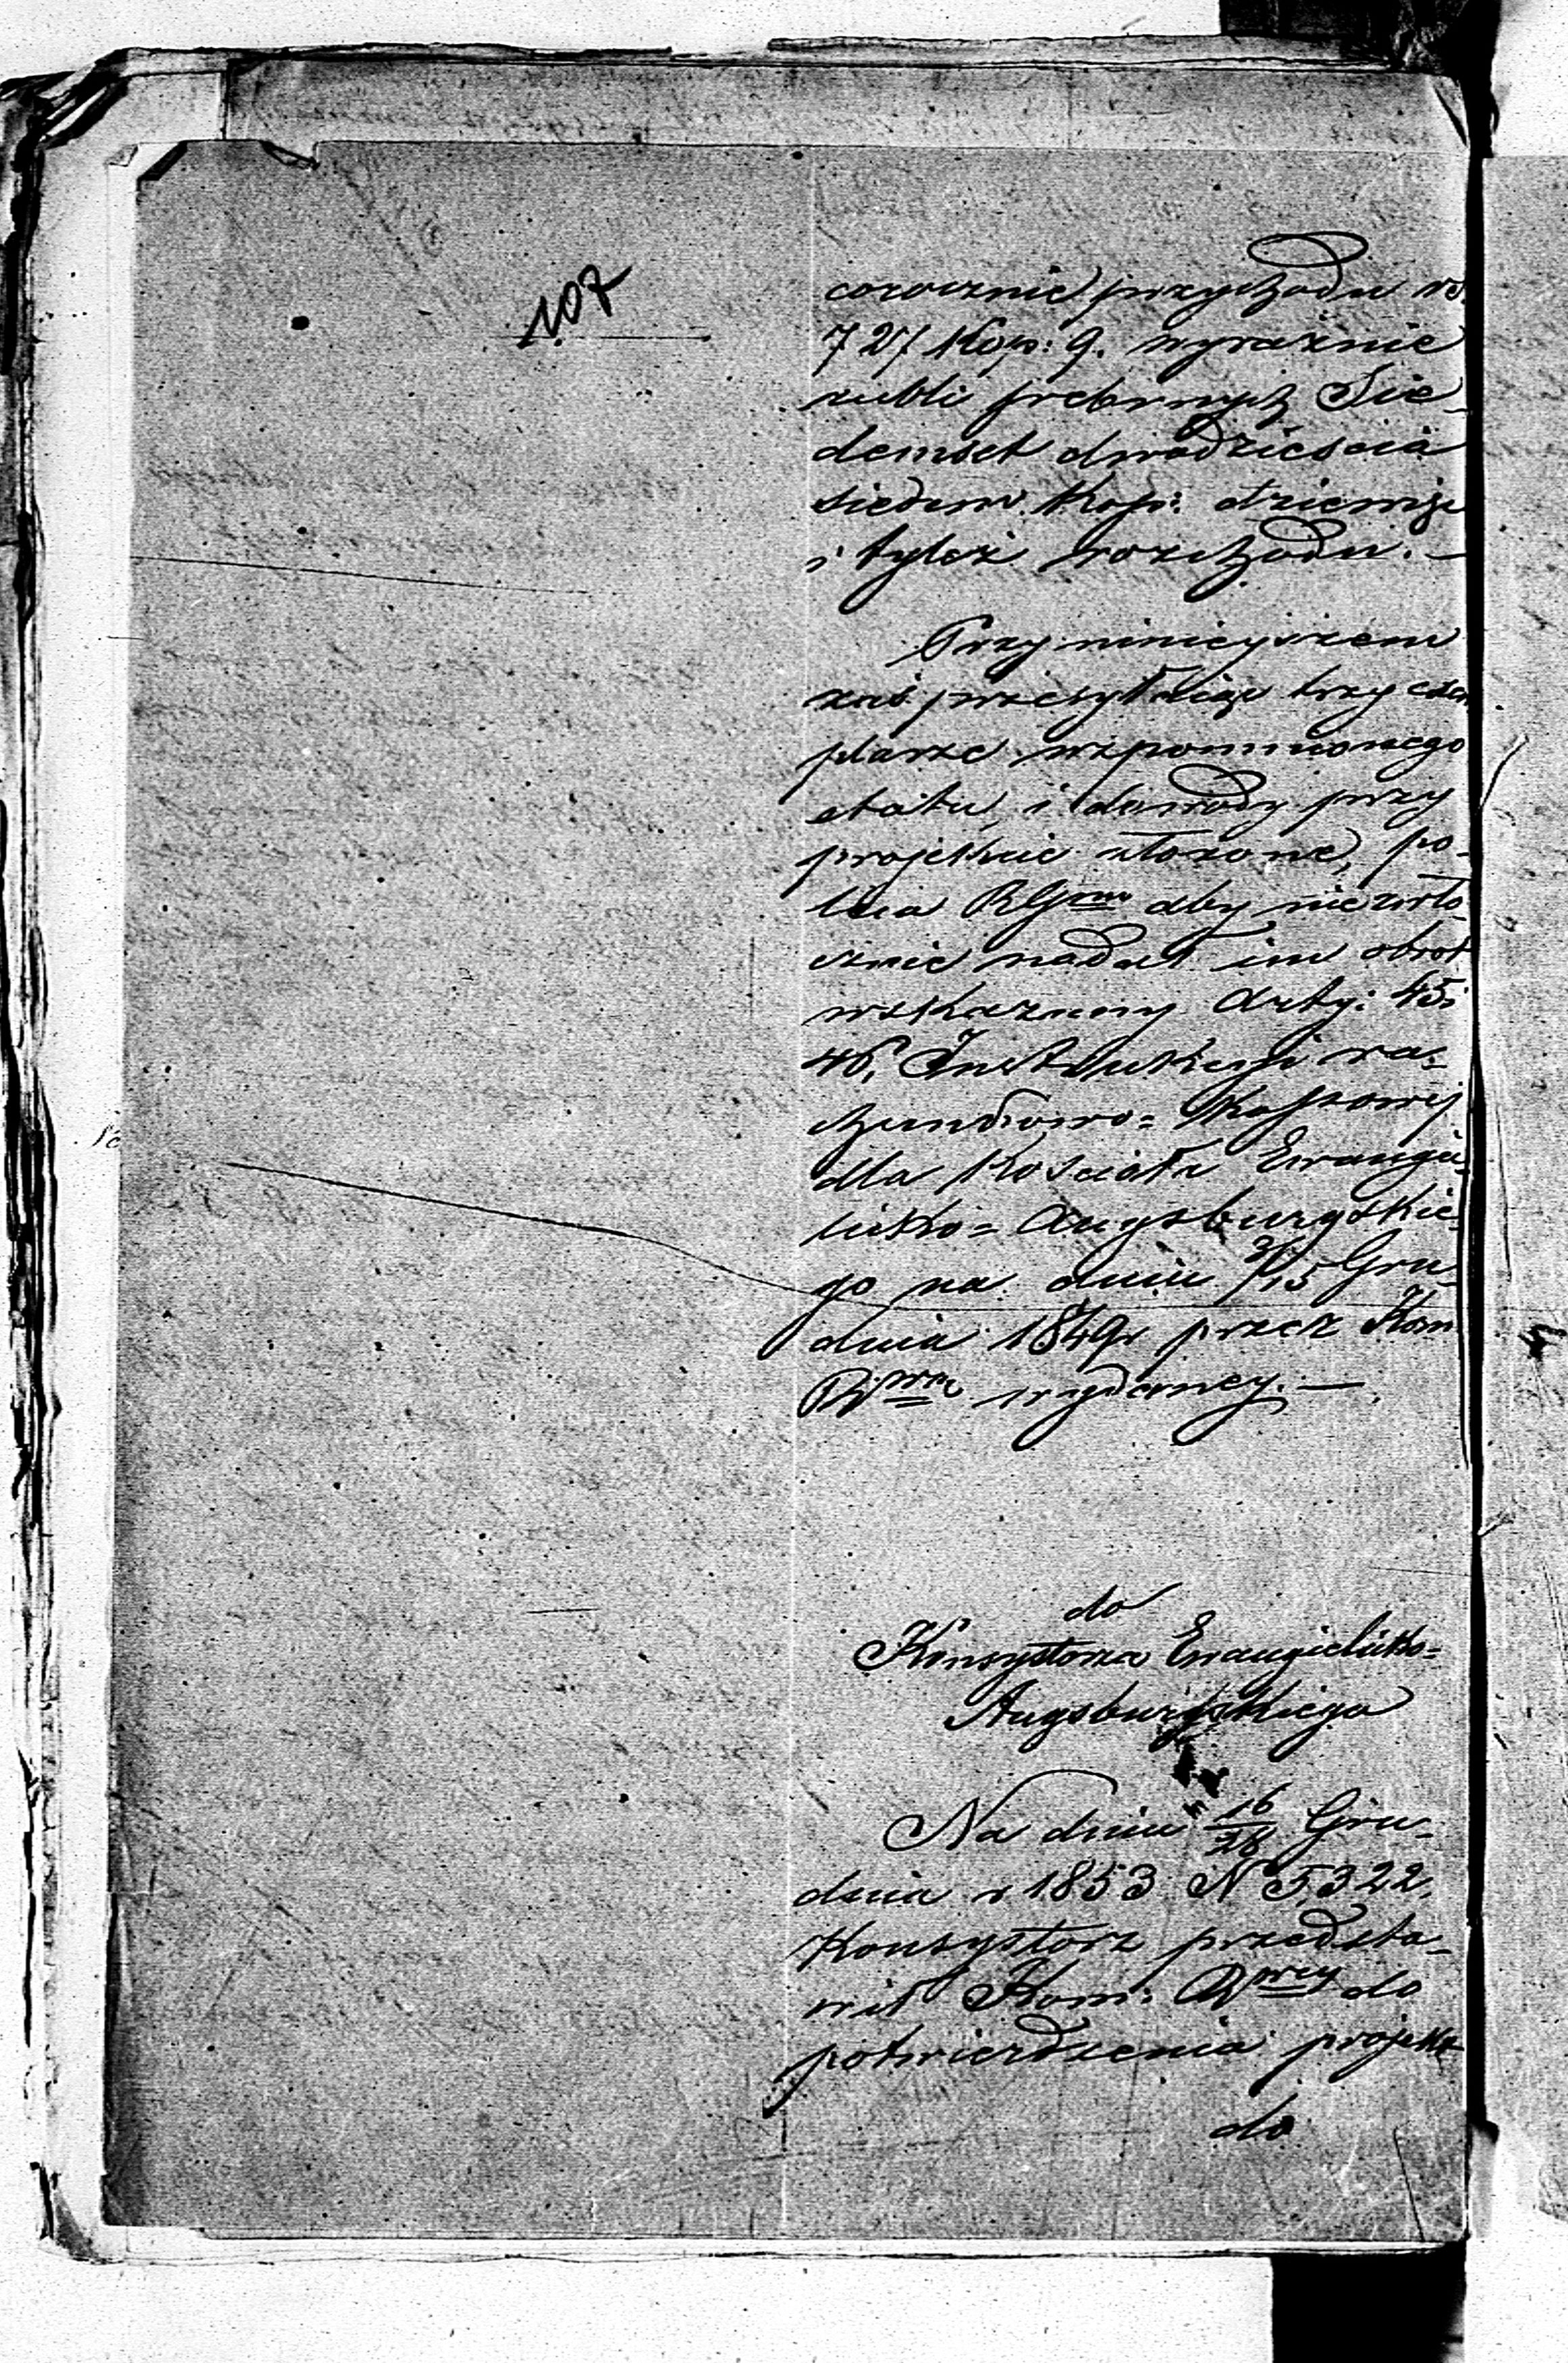 107
corocznie przychodu rs.
727 Kop: 9. wyraźnie
rubli srebrnych Sie-
demset dwadzieścia
siedem Kop: dziewięć
i tyleż rozchodu. —
Przy niniejszem
zaś przesyłaiąc trzy exem
plarze wzpomnionego
etatu, i dowody przy
projekcie złożone, po-
leca RGmu aby niezwło-
cznie nadał im obrot
wskazany Arty: 45 i
46, Instrukcyi ra-
chunkowo= Kassowej
dla Kościoła Ewangie-
licko= Augsburgskie-
go na dniu 3/15 Gru-
dnia 1849 r przez Kom
Rz wydaney. —
do
Konsystorza Ewangielicko=
Augsburgskiego
Na dniu 16/28 Gru-
dnia r 1853 N 5322.
Konsystorz przedsta-
wił Kom: Rz do
potwierdzenia projekt
do